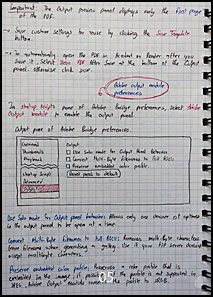 Important: The Output preview panel displays only the first page
of the PDF.
Save custom settings to reuse by clicking the Save Template
button.
To automatically open the PDF in Acrobat or Reader after you
save it, select View PDF After Save at the bottom of the Output
panel, otherwise click
Adobe output module
preferences
In startup scripts pane of Adobe Bridge preferences, select Adobe
Output Module to enable the output panel.
Output pane of Adobe Bridge preferences.
General
Thumbnails
Playback
Startup Scripts
Advanced
Output
Output
Use Solo Mode for Output Panel Behavior
Convert Multi-Byte Filenames to Full ASCII
Preserve embedded color profile
Reset panel to default
Use Solo mode for Output panel behavior: Allows only one drawer of options
in the output panel to be open at a time.
Convert Multi-Byte Filenames to Full ASCII: Removes multi-byte characters
from filenames when generating a gallery. Use if your FTP server doesn't
accept multibyte characters.
Preserve embedded color profile: Preserves color profile that is
embedded in the image, if possible. If the profile is not supported in
JPEG, Adobe Output Module converts the profile to sRGB.